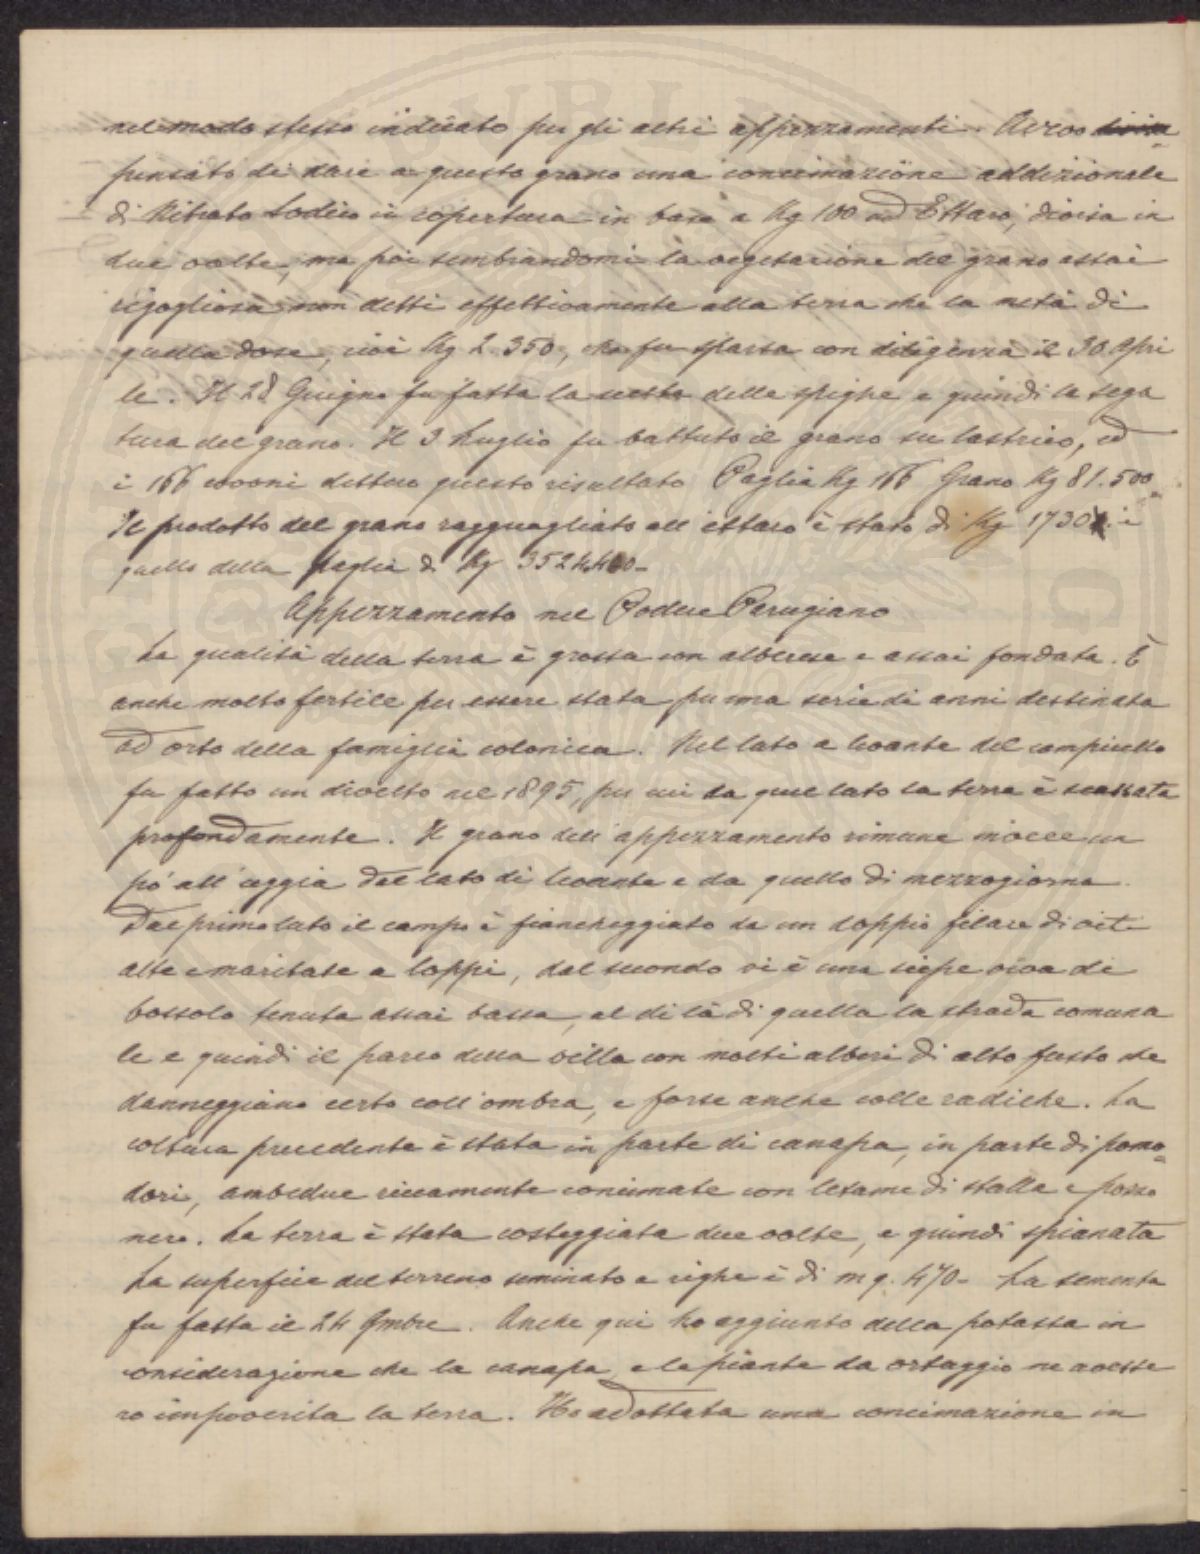 nel modo stesso indicato per gli altri appezzamenti. Avevo
pensato di dare a questo grano una concimazione addizionale
di Nitrato Sodico in copertura in base a Kg 100 ad Ettaro, divisa in
due volte, ma poi sembrandomi la vegetazione del grano assai
rigogliosa non detti effettivamente alla terra che la metà di
quella dose, cioè Kg 2.350, che fu sparsa con diligenza il 30 Apri
le. Il 28 Giugno fu fatta la scelta delle spighe e quindi la sega
tura del grano. Il 3 Luglio fu battuto il grano su lastrico, ed
i 166 covoni dettero questo risultato Paglia Kg 166 Grano Kg 81.500
Il prodotto del grano ragguagliato all'ettaro è stato di Kg 1730 e
quello della paglia di Kg
Appezzamento nel Podere Perugiano
La qualità della terra è grossa con alberese e assai fondata. È
anche molto fertile per essere stata per una serie di anni destinata
ad orto della famiglia colonica. Nel lato a levante del campicello
fu fatto un divelto nel 1895, per cui da quel lato la terra è scassata
profondamente. Il grano dell'appezzamento rimane invece un
pó all'uggia dal lato di levante e da quello di mezzogiorno.
Dal primo lato il campo è fiancheggiato da un doppio filare di viti
alte e maritate a loppi, dal secondo vi è una siepe viva di
bossolo tenuta assai bassa, al di là di quella la strada comuna
le e quindi il parco della villa con molti alberi di alto fusto che
danneggiano certo coll'ombra, e forse anche colle radiche. La
coltura precedente è stata in parte di canapa, in parte di pomo=
dori, ambedue riccamente concimate con letame di stalla e pozzo
nero. La terra è stata costeggiata due volte, e quindi spianata
La superficie del terreno seminato a righe è di mq. 470- La sementa
fu fatta il 24 9mbre. Anche qui ho aggiunto della potassa in
considerazione che la canapa e le piante da ortaggio ne avesse
ro impoverita la terra. Ho adottata una concimazione in